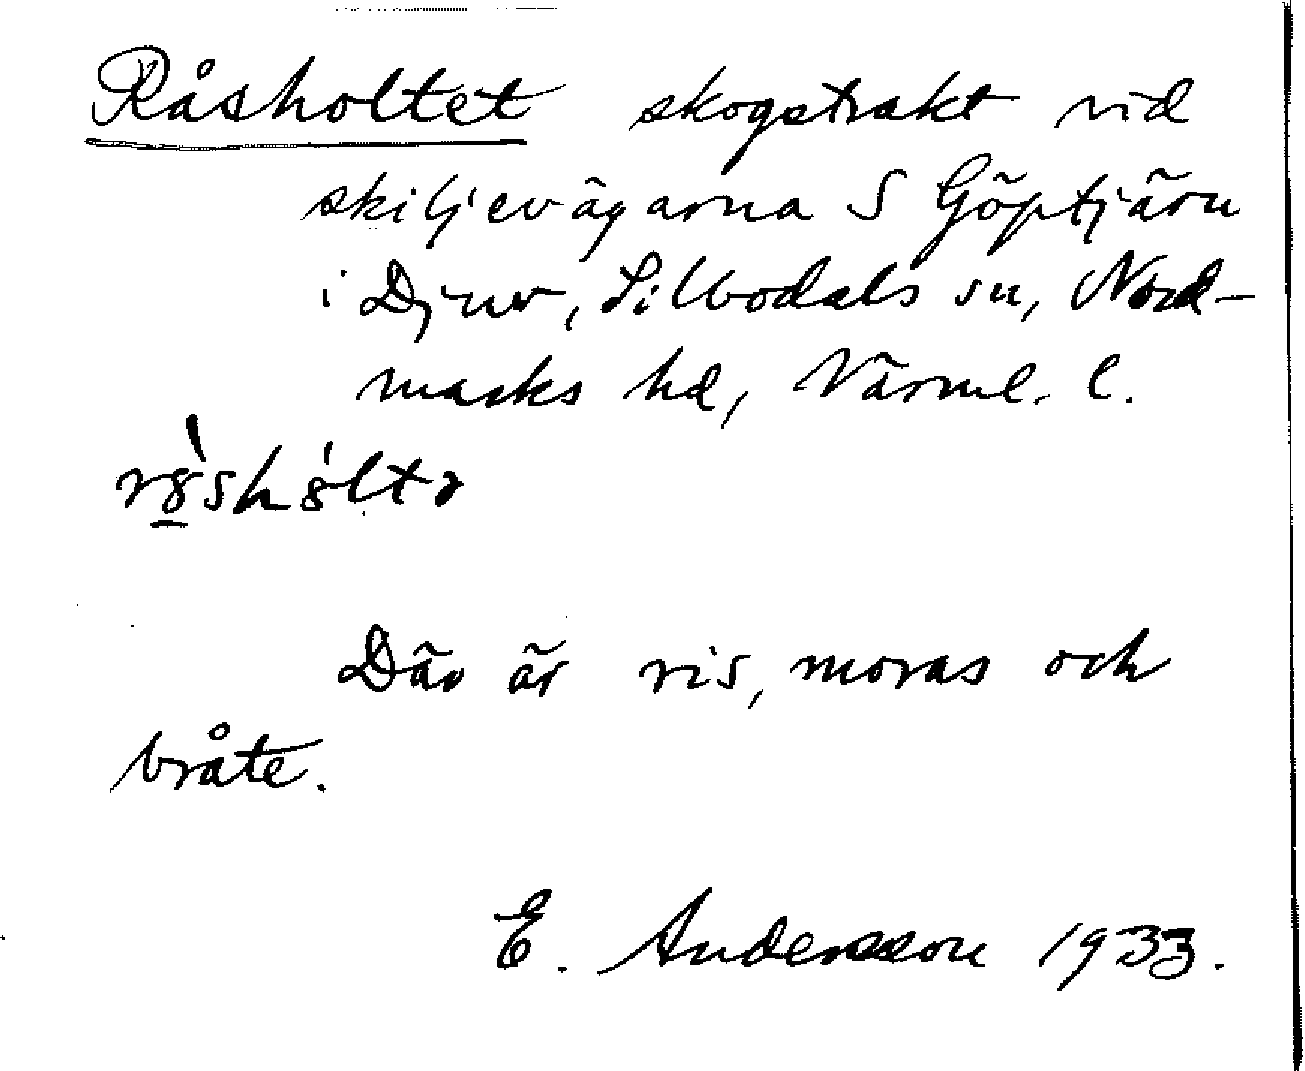 Råsholtet skogstrakt vid
skiljevägarna S Göptjärn
i Djuv, Silbodals sn, Nord-
marks hd, Värml. l.
Där är ris, moras och
bråte.
E. Andersson 1933.